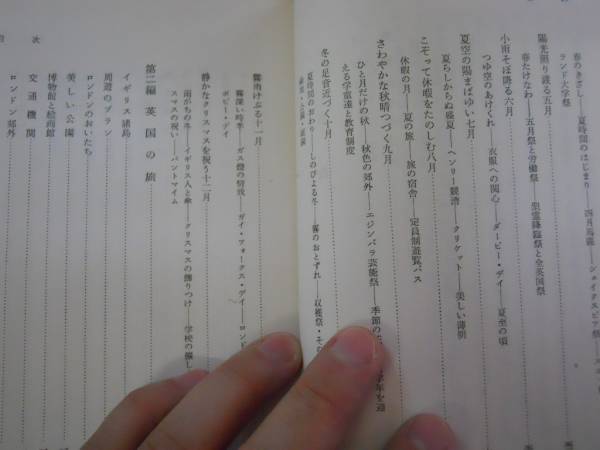 春のきざし──夏時間のはじまり──四月馬鹿──シェイクスピア祭
ランド大学祭
陽光照り映る五月
春たけなわ──五月祭と労働祭──聖霊降臨祭と全英国祭
小雨そぼ降る六月
つゆ空のあけくれ──衣服への関心──ダービー・デイ──夏至の頃
夏空の陽まばゆい七月
夏らしからぬ盛夏──ヘンリー競漕──クリケット──美しい薄明
こぞって休暇をたのしむ八月
休暇の月──夏の旅──旅の宿舎──定員制遊覧バス
さわやかな秋晴つづく九月
ひと月だけの秋──秋色の郊外──エジンバラ芸能祭──季節の
学年を迎
える学童達と教育制度
冬の足音近づく十月
夏時間のおわり──しのびよる冬──霧のおとずれ──収穫祭・その
霧雨けぶる十一月
霧深い時季──ガス燈の情效──ガイ・フォークス・デイ──ロンド
ポピー・デイ
静かなクリスマスを祝う十二月
雨がちの冬──イギリス人と傘──クリスマスの飾りつけ──学校の催し
スマスの祝い──パントマイム
第二編 英国の旅
イギリス諸島
周遊のプラン
ロンドンのおいたち
美しい公園
博物館と絵画館
交通機関
ロンドン郊外
目次